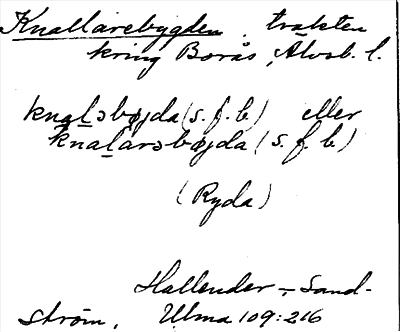 Knallarebygden, trakten
kring Borås, Älvsb. l.
knaḷəbøjda (s. f. b.) eller
knaḷarəbøjda (s. f. b.)
(Ryda)
Hallender - Sand-
ström, Ulma 109:216